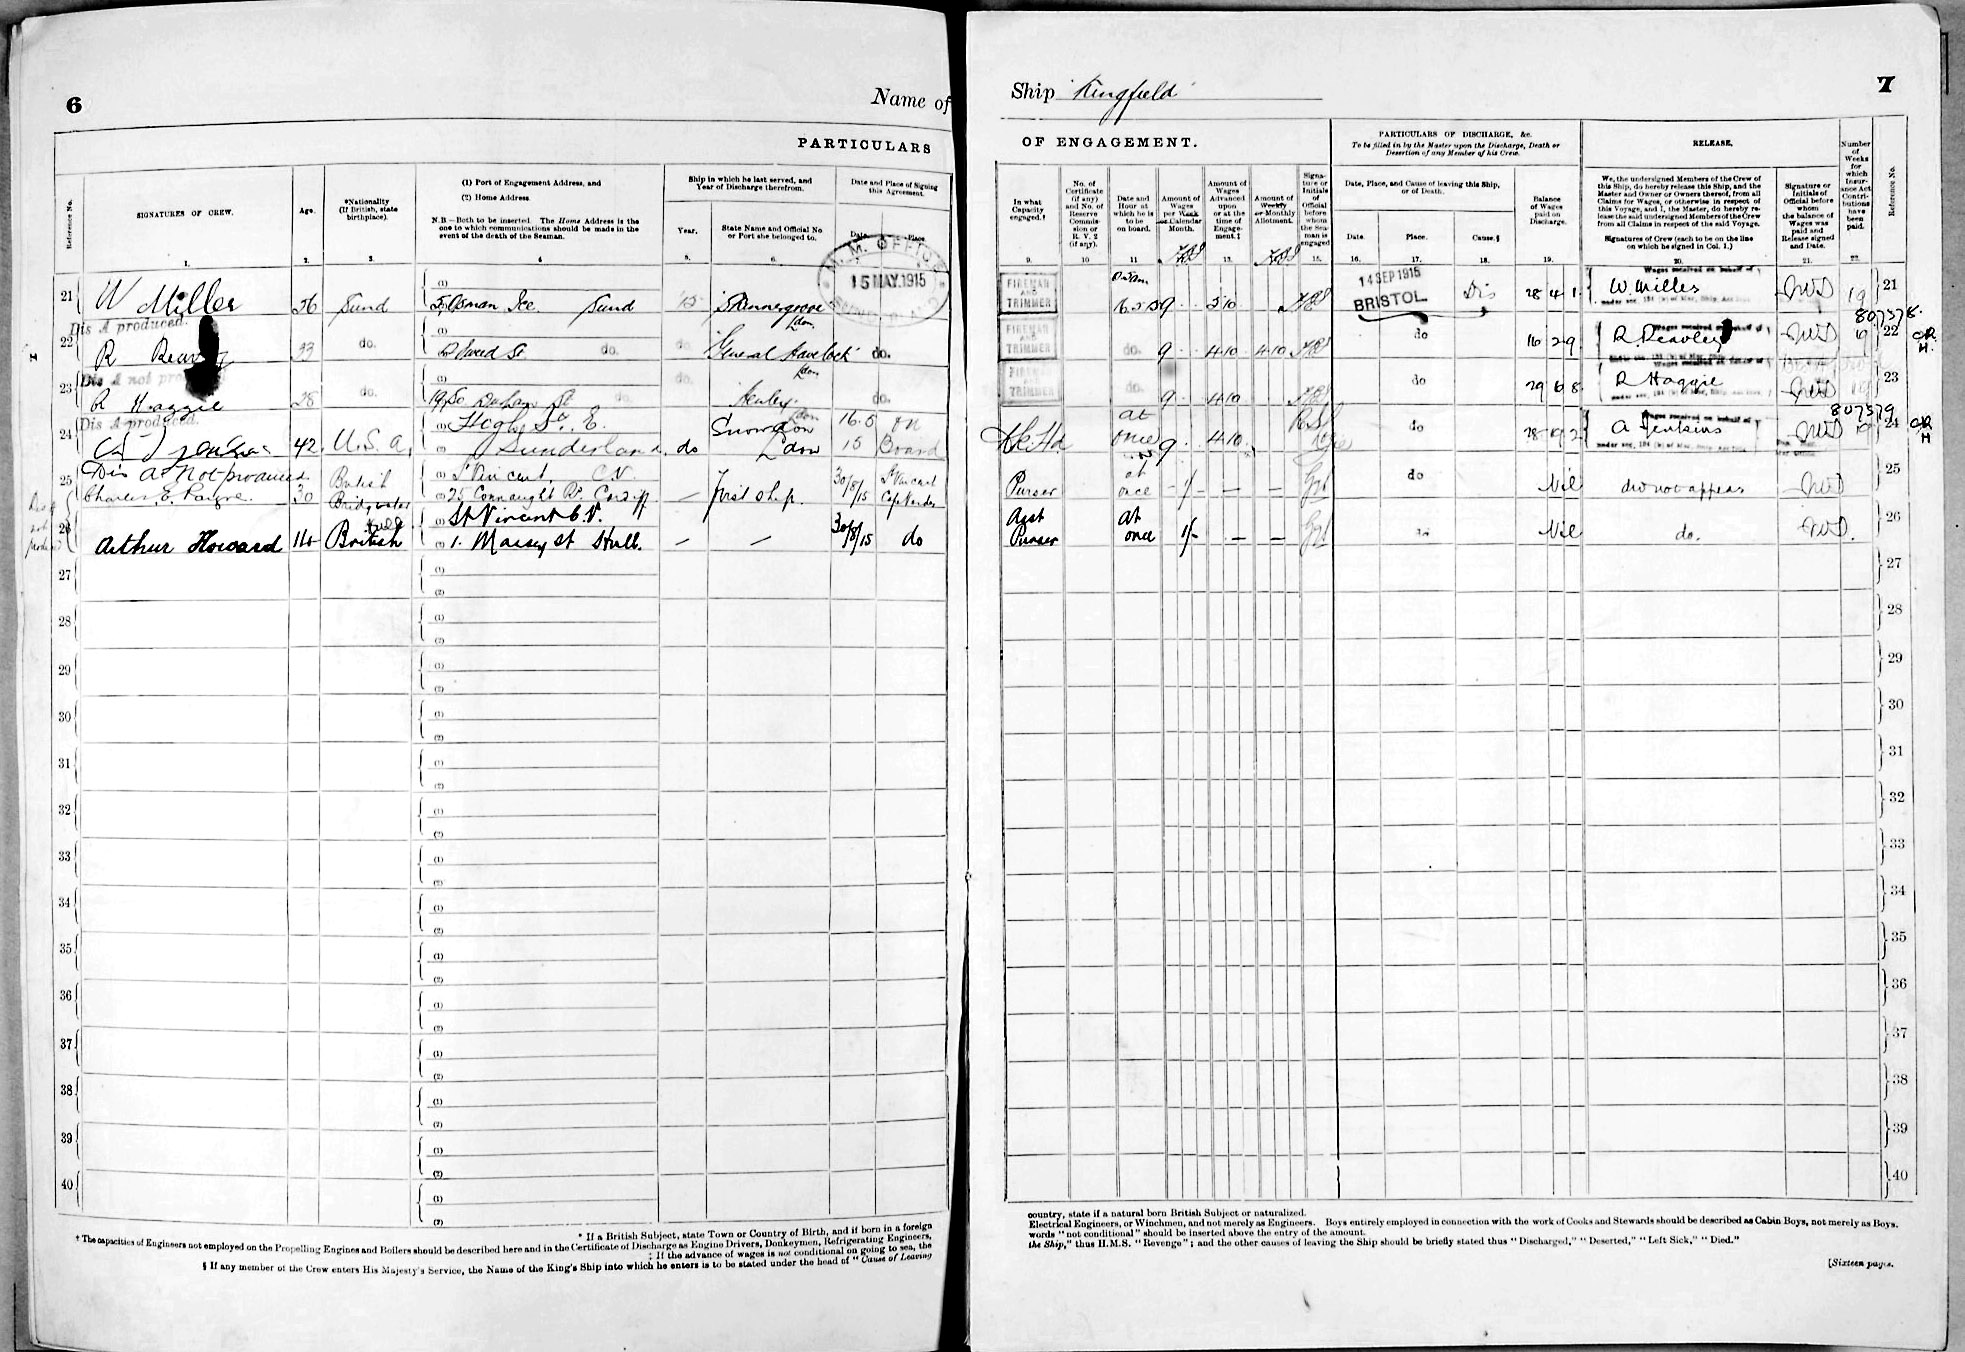 6
Name of
PARTICULARS
Reference No.
SIGNATURES OF CREW.
Age.
*Nationality
(If British, state
birthplace).
(1) Port of Engagement Address, and
(2) Home Address.
N.B.—Both to be inserted. The Home Address is the
one to which communications should be made in the
event of the death of the Seaman.
Ship in which he last served, and
Year of Discharge therefrom.
Year.
State Name and Official No
or Port she belonged to.
Date and Place of Signing
this Agreement.
Date
Place
1. 2. 3. 4 5. 6.
M.M. OFFICE
15 MAY 1915
21 W Miller 26 Sund Sund 15
Dis A produced.
22 R do. St do. do. General Havelock do.
Ldn
Dis A not pro
23 R Haggie 28 do. St do do. Henley do.
Ldn
Dis A produced.
24 42. U.S.A. High St. E. Sunderland. do Snowdon Ldn 16.5 15 on Board
Dis A Not produced
25 Charles E. Payne. 30 British Bridgwater St Vincent. C.V. 25 Connaught Rd. Cardiff — First ship. 30/8/15 St Vincent Cape Verdes
Dis A not produced
26 Arthur Howard 16 Hull British St Vincent C.V. 1. Massey St Hull. — — 30/8/15 do
27 (1) (2)
28 (1) (2)
29 (1) (2)
30 (1) (2)
31 (1) (2)
32 (1) (2)
33 (1) (2)
34 (1) (2)
35 (1) (2)
36 (1) (2)
37 (1) (2)
38 (1) (2)
39 (1) (2)
40 (1) (2)
* If a British Subject, state Town or Country of Birth, and if born in a foreign
† The capacities of Engineers not employed on the Propelling Engines and Boilers should be described here and in the Certificate of Discharge as Engine Drivers, Donkeymen, Refrigerating Engineers,
‡ If the advance of wages is not conditional on going to sea, the
§ If any member of the Crew enters His Majesty's Service, the Name of the King's Ship into which he enters is to be stated under the head of "Cause of Leaving
Ship Kingfield
7
OF ENGAGEMENT.
PARTICULARS OF DISCHARGE, &c.
To be filled in by the Master upon the Discharge, Death or
Desertion of any Member of his Crew.
RELEASE.
In what
Capacity
engaged.†
No. of
Certificate
(if any)
and No. of
Reserve
Commis-
sion or
R. V. 2
(if any).
Date and
Hour at
which he is
to be
on board.
Amount of
Wages
per Week
or Calendar
Month.
Amount of
Wages
Advanced
upon
or at the
time of
Engage-
ment.‡
Amount of
Weekly
or Monthly
Allotment.
Signa-
ture or
Initials
of
Official
before
whom
the Sea-
man is
engaged
Date, Place, and Cause of leaving this Ship,
or of Death.
Date.
Place.
Cause.§
Balance
of Wages
paid on
Discharge.
We, the undersigned Members of the Crew of
this Ship, do hereby release this Ship, and the
Master and Owner or Owners thereof, from all
Claims for Wages, or otherwise in respect of
this Voyage, and I, the Master, do hereby re-
lease the said undersigned Members of the Crew
from all Claims in respect of the said Voyage.
Signatures of Crew (each to be on the line
on which he signed in Col. 1.)
Signature or
Initials of
Official before
whom
the balance of
Wages was
paid and
Release signed
and Date.
Number
of
Weeks
for
which
Insur-
ance Act
Contri-
butions
have
been
paid.
Reference No.
9. 10 11 12. 13. 15. 16. 17. 18. 19. 20. 21. 22.
FIREMAN AND TRIMMER 9 5 10 14 SEP 1915 BRISTOL Dis 28 4 1 W Miller 19 21
807578.
FIREMAN AND TRIMMER do. 9 4 10 4 10 do 16 2 9 R Reavley 22
FIREMAN AND TRIMMER do. 9 4 10 do 29 6 8 R Haggie 19 23
807579
at once 9 4 10 do 28 19 2 A Jenkins 19 24
Purser at once 1/- — — do Nil did not appear 25
Asst Purser at once 1/- — — do Nil do. 26
27
28
29
30
31
32
33
34
35
36
37
38
39
40
country, state if a natural born British Subject or naturalized.
Electrical Engineers, or Winchmen, and not merely as Engineers. Boys entirely employed in connection with the work of Cooks and Stewards should be described as Cabin Boys, not merely as Boys.
words "not conditional" should be inserted above the entry of the amount.
the Ship," thus H.M.S. "Revenge"; and the other causes of leaving the Ship should be briefly stated thus "Discharged," "Deserted," "Left Sick," "Died."
[Sixteen pages.